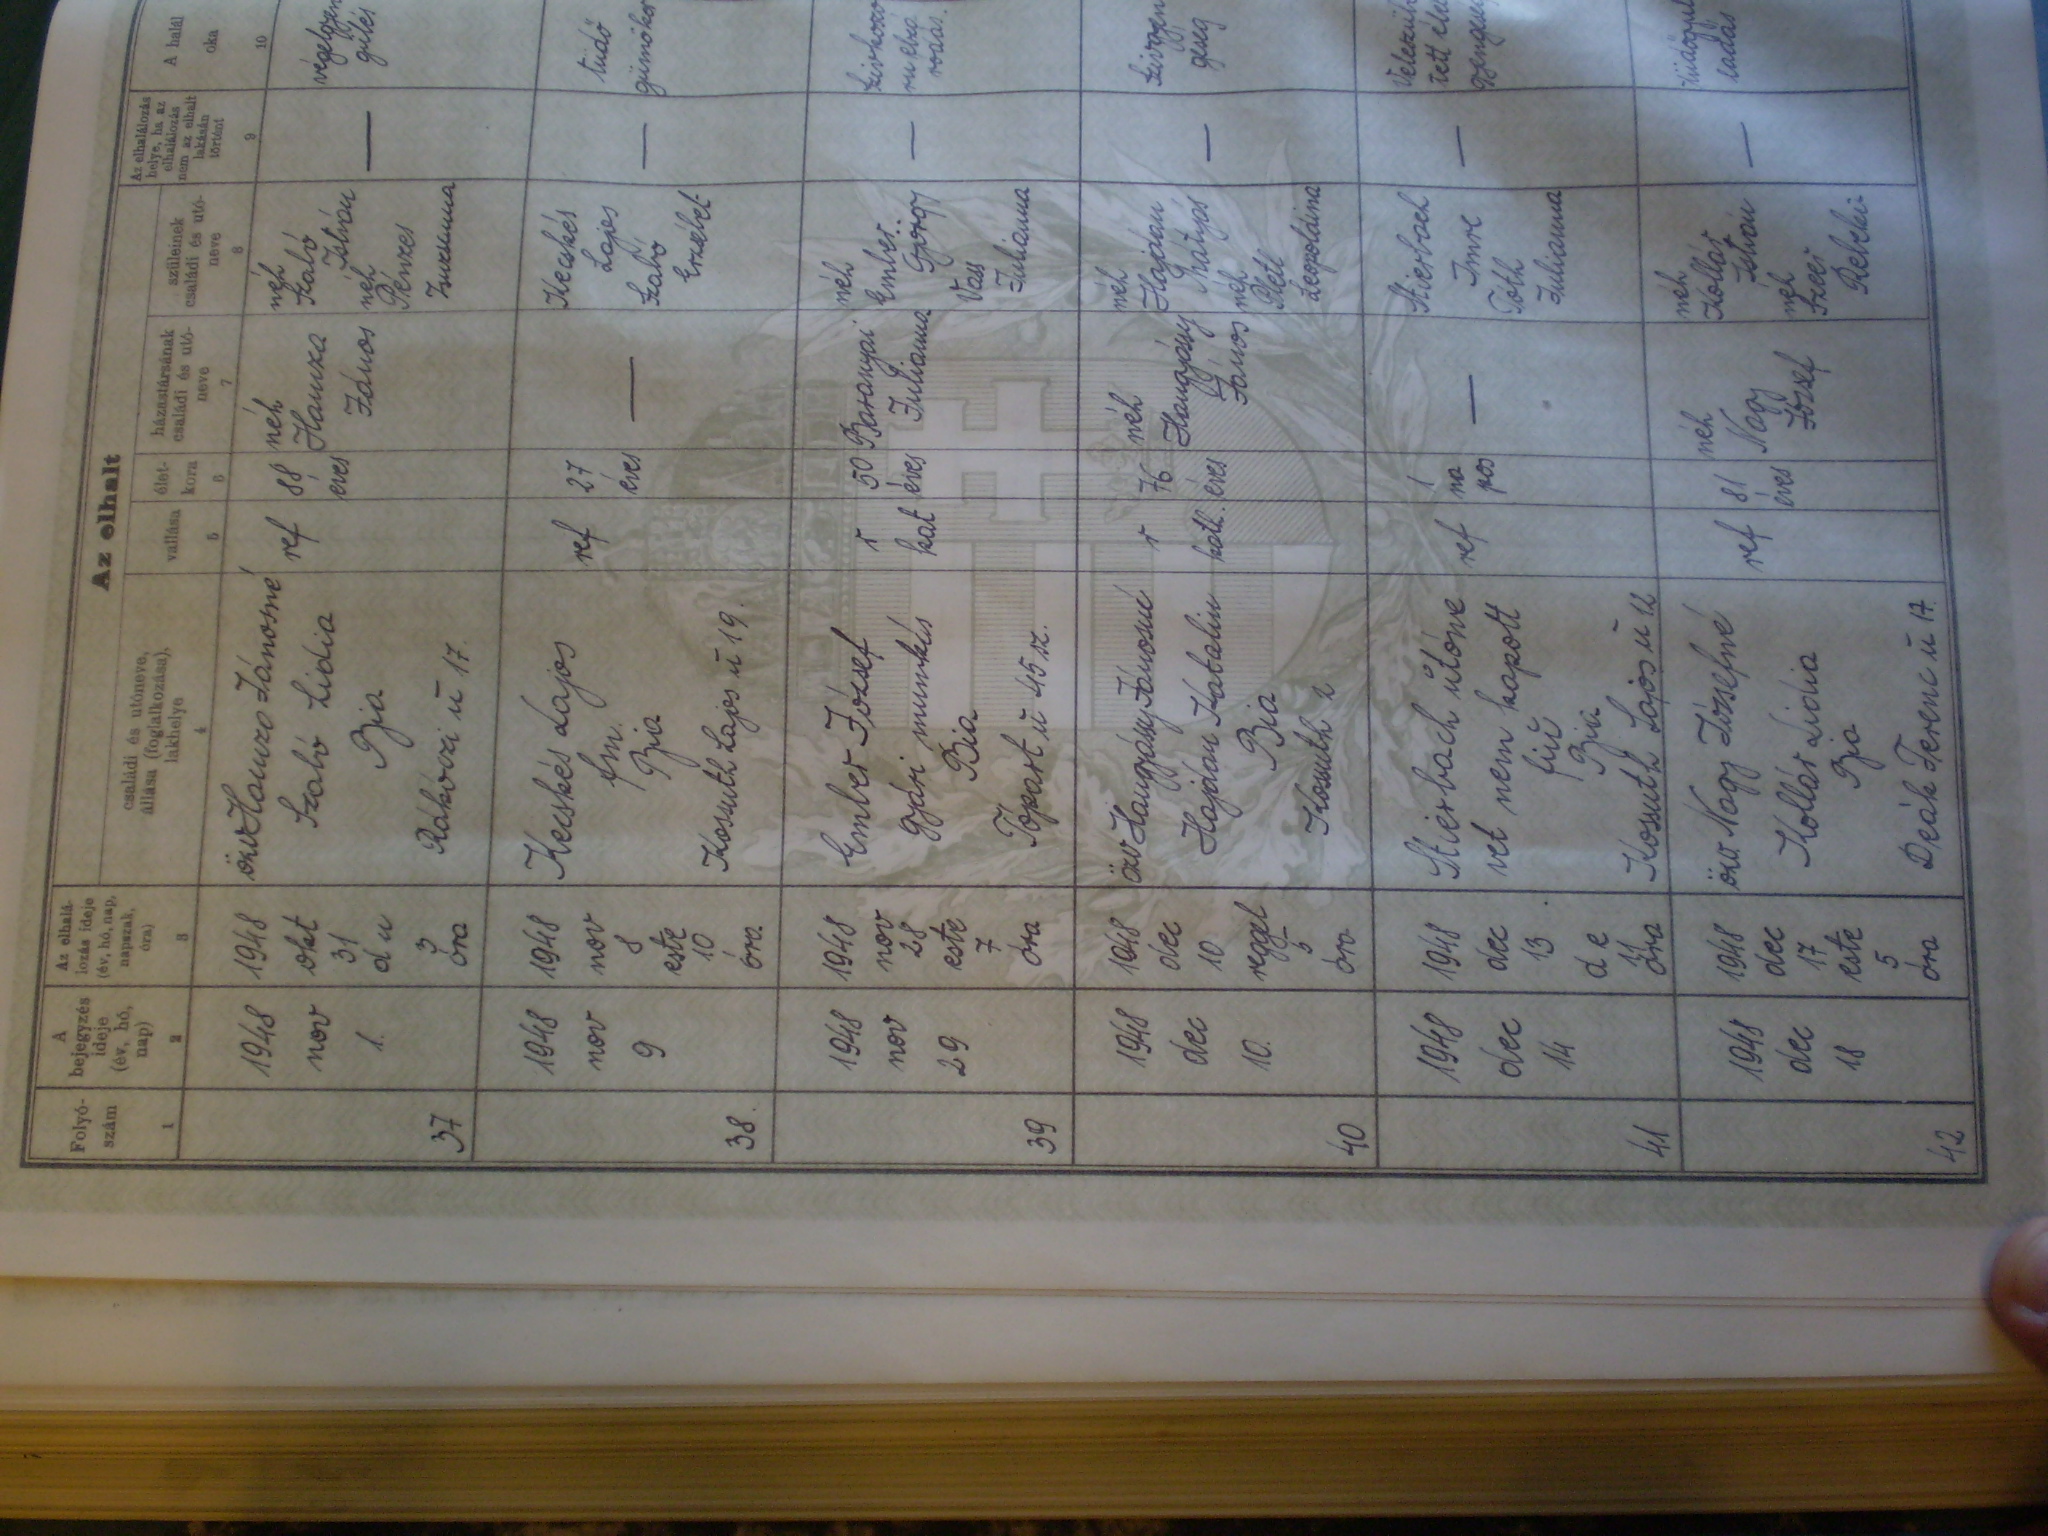 Az elhalt
Folyó-
szám
A
bejegyzés
ideje
(év, hó,
nap)
Az elhalá-
lozás ideje
(év, hó, nap,
napszak,
óra)
családi és utóneve,
állása (foglalkozása),
lakhelye
vallása
élet-
kora
házastársának
családi és utó-
neve
szüleinek
családi és utó-
neve
Az elhalálozás
helye, ha az
elhalálozás
nem az elhalt
lakásán
történt
A halál
oka
1
2
3
4
5
6
7
8
9
10
37
1948
nov
1.
1948
okt
31
d u
3
óra
özv Hanzo Jánosné
Szabó Lidia
Bia
Rákóczi u 17.
ref
88
éves
néh
János
néh
Szabó
István
néh
Pénzes
Zsuzsanna
—
38.
1948
nov
9
1948
nov
8
este
10
óra
Kecskés Lajos
fm.
Bia
Kossuth Lajos u 19.
ref
27
éves
—
Kecskés
Lajos
Szabó
Erzsébet
—
tüdő
gümőkor
39
1948
nov
29
1948
nov
28
este
7
óra
Ember József
gyári munkás
Bia
Tópart u 45 sz.
r
kat
50
éves
Baranyai
Julianna
néh
Ember
György
Vass
Julianna
—
40
1948
dec
10.
1948
dec
10
reggel
5
óra
özv Hangyássy Jánosné
Hajdan Katalin
Bia
Kossuth 2
r
kath.
76
éves
néh
János
néh
Hajdan
Mátyás
néh
Leopoldina
—
41
1948
dec
14
1948
dec
13
d e
11
óra
Stierbach utóne
vet nem kapott
fiú
Bia
Kossuth Lajos u 12
ref
1
na
pos
—
Stierbach
Imre
Tóth
Julianna
—
42
1948
dec
18
1948
dec
17
este
5
óra
özv. Nagy Józsefné
Kollár Lidia
Bia
Deák Ferenc u 17.
ref
81
éves
néh
Nagy
József
néh
Kollár
István
néh
—